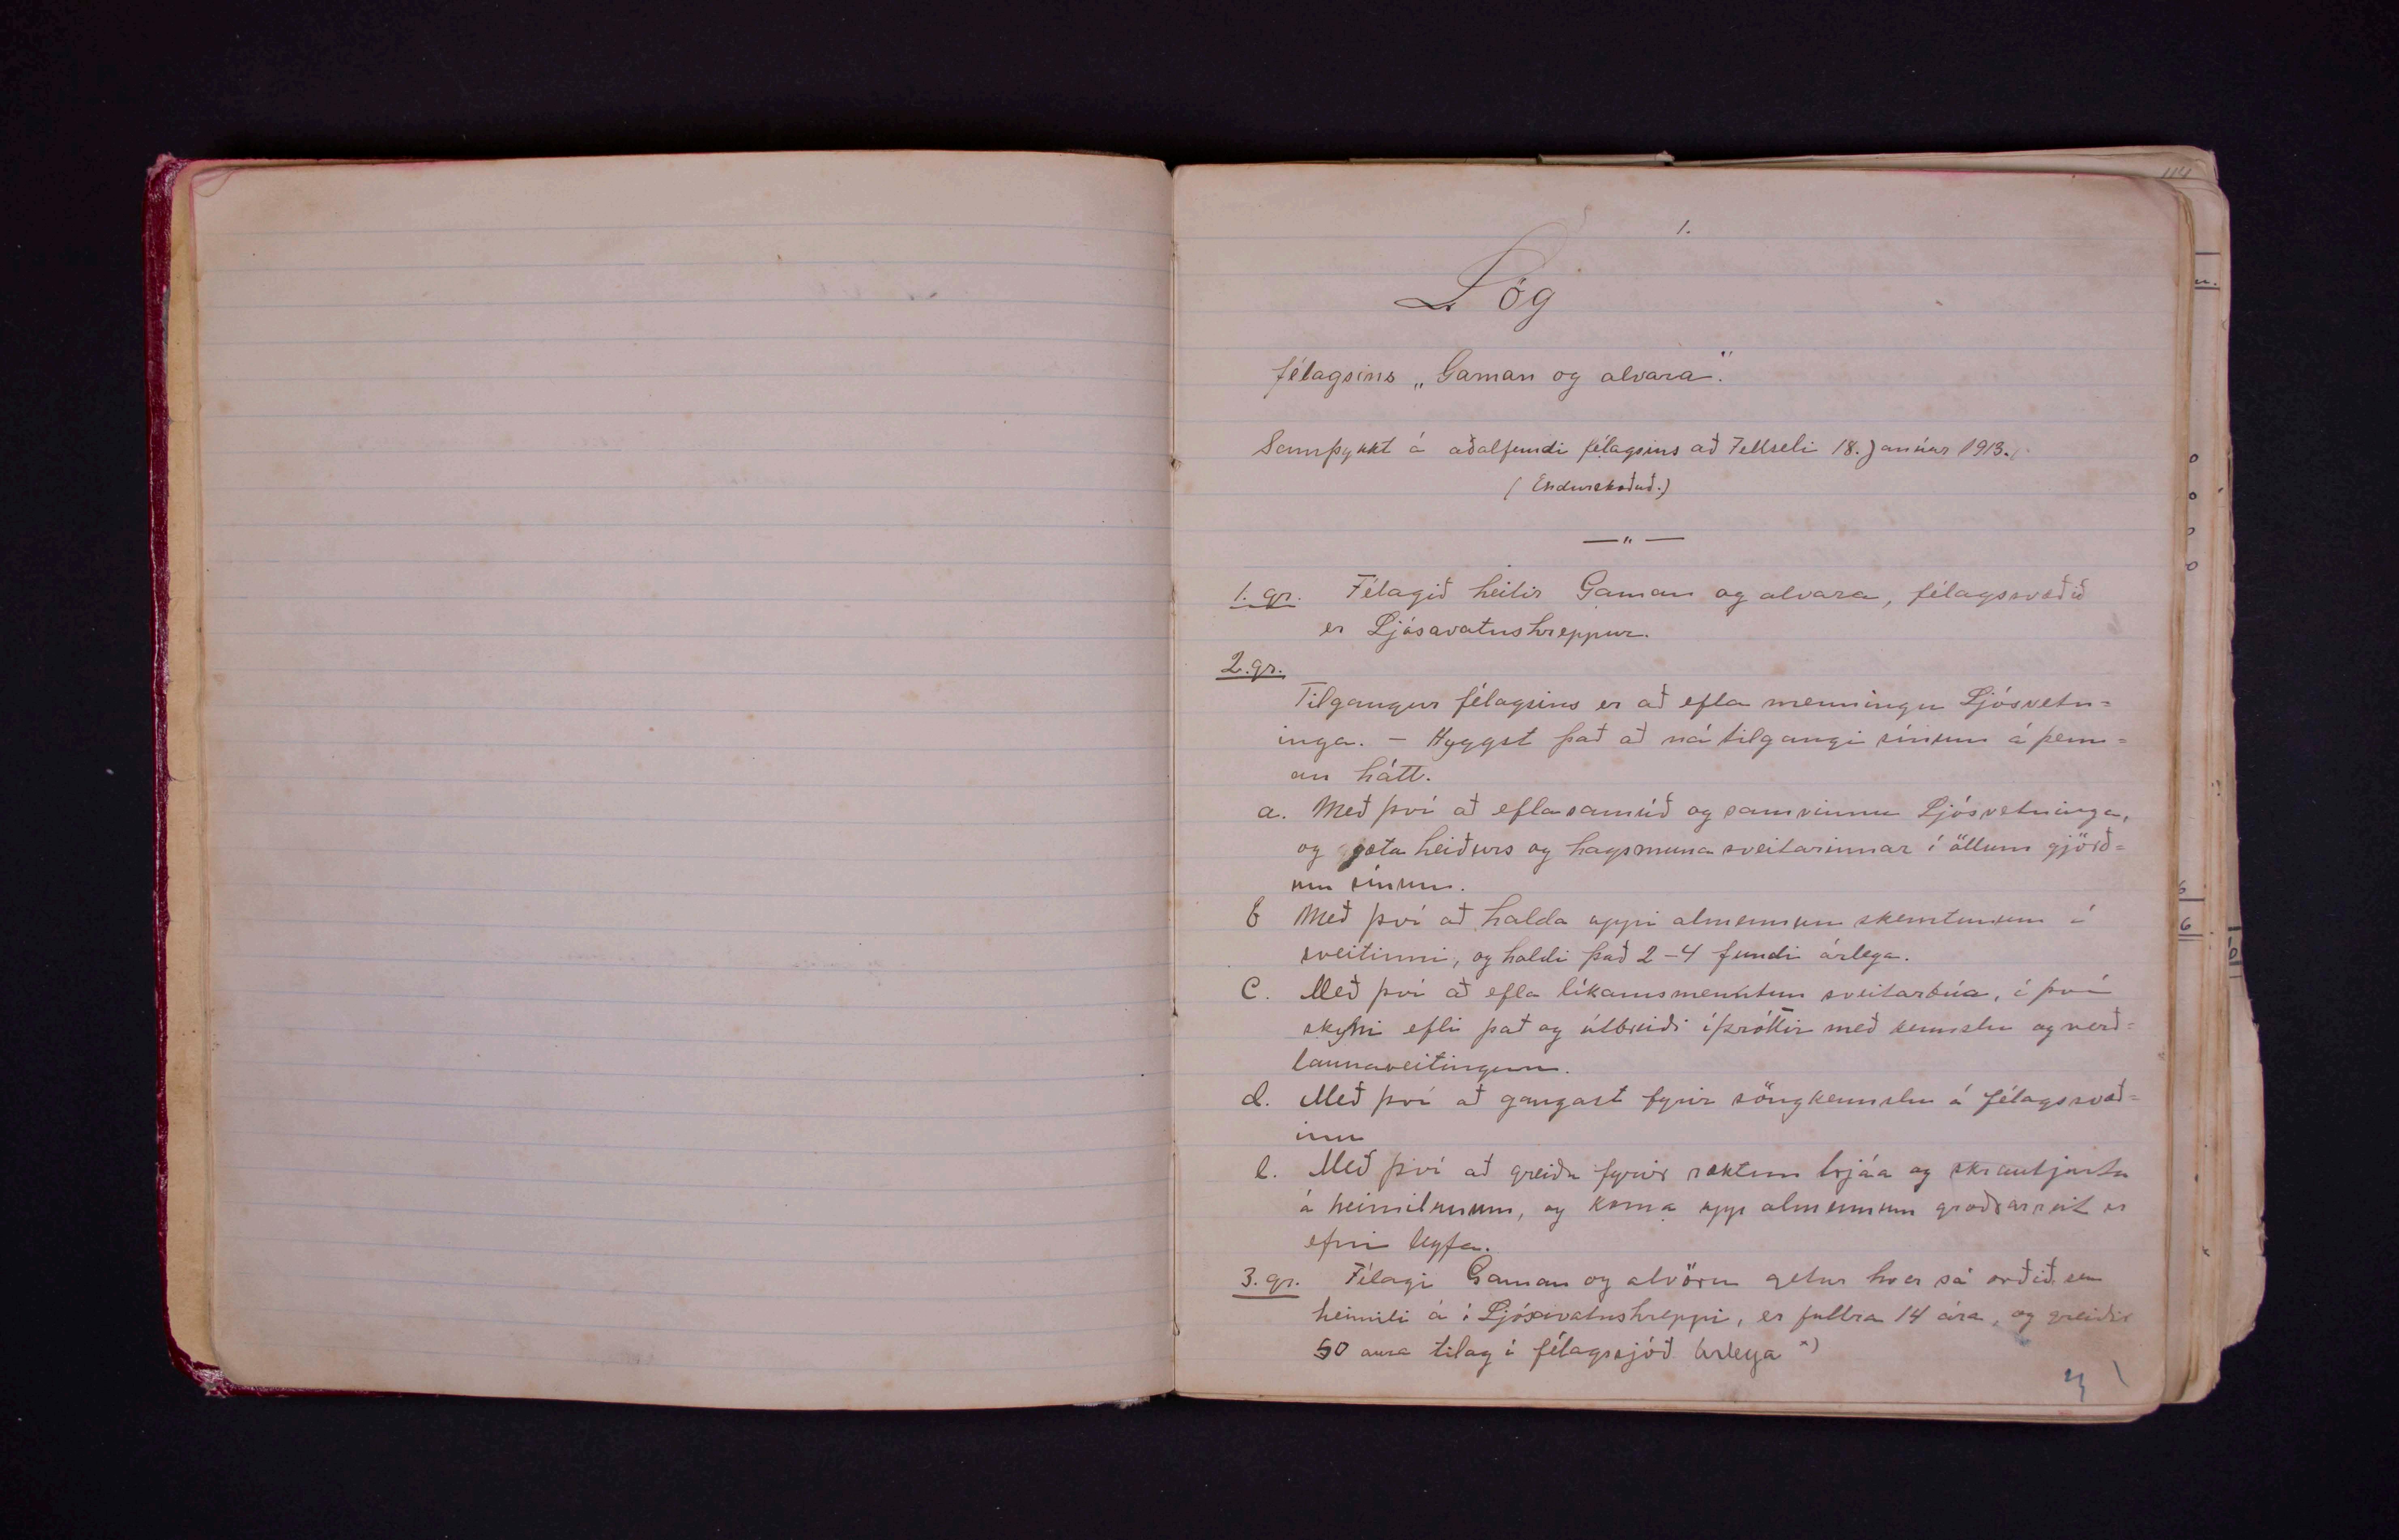 1.
Lög
félagsins „Gaman og alvara".
Samþykkt á aðalfundi félagsins að Fellseli 18. Janúar 1913.
(Endurskoðuð.)
— " —
1. gr. Félagið heitir Gaman og alvara, félagssvæðið
er Ljósavatnshreppur.
2. gr.
Tilgangur félagsins er að efla menningu Ljósvetn=
inga. – Hyggst það að ná tilgangi sínum á þenn=
an hátt.
a. Með því að efla samúð og samvinnu Ljósvetninga,
og gæta heiðurs og hagsmuna sveitarinnar í öllum gjörð=
um sínum.
b Með því að halda uppi almennum skemtunum í
sveitinni, og haldi það 2–4 fundi árlega.
C. Með því að efla líkamsmenntun sveitarbúa, í því
skyni efli það og útbreiði íþróttir með kennslu og verð=
launaveitingum.
d. Með því að gangast fyrir söngkennslu á félagssvæð=
inu
e. Með því að greiða fyrir ræktun trjáa og skrautjurta
á heimilunum, og koma upp almennum gróðrarreit er
efni leyfa.
3. gr. Félagi Gaman og alvöru getur hver sá orðið, sem
heimili á í Ljósavatnshreppi, er fullra 14 ára, og greiðir
50 aura tilag í félagssjóð árlega *)
114
n.
0
0
0
0
6
6